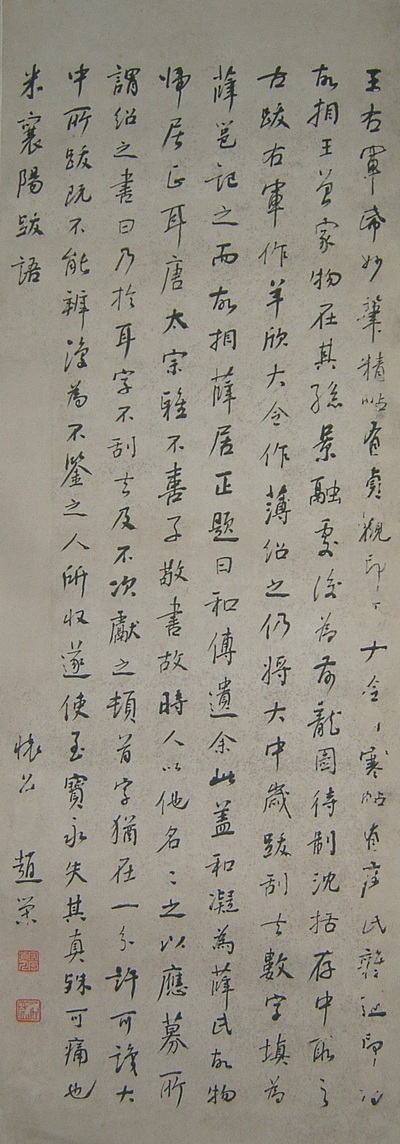 王右軍帋妙筆精帖有貞觀印大令寒帖有唐氏雜迹印
故相王曾家物在其孫景融處後為前龍圖待制沈括存中取之
古跋右軍作羊欣大令作薄紹之仍將大中歲跋刮去數字填為
薛邕記之而故相薛居正題曰和傅遺余此蓋和凝為薛氏故物
歸居正耳唐太宗雅不喜子敬書故時人以他名名之以應募所
謂紹之書曰乃於耳字不刮去及不次獻之頓首字猶在一分許可讀大
中所跋既不能辨浸為不鑒之人所收遂使至寶永失其真殊可痛也
米襄陽跋語
趙